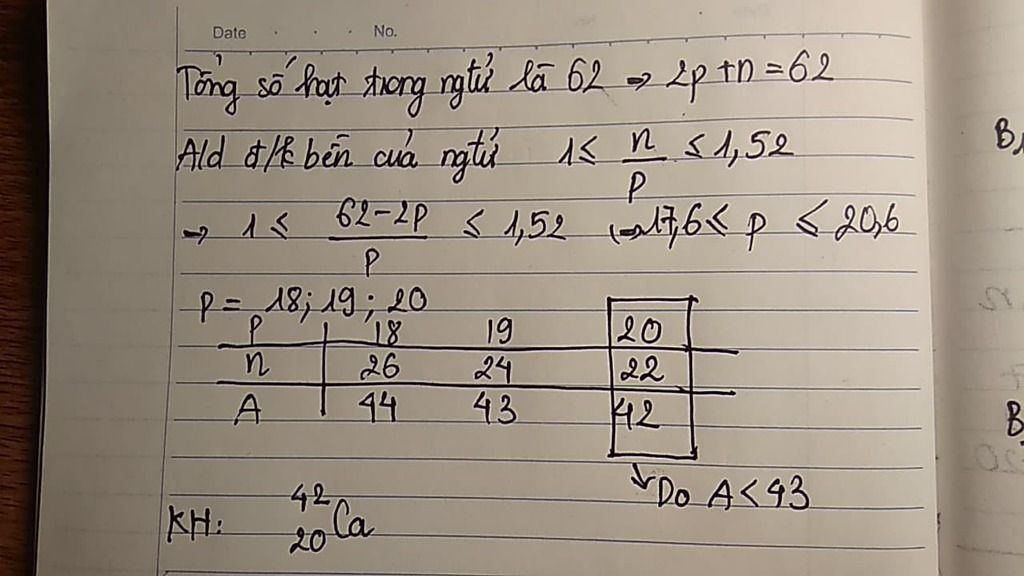 Date . . . No.
Tổng số hạt trong ngtử là 62 => 2p+n=62
Ald đ/k bền của ngtử 1≤ n/p ≤1,52
=> 1 ≤ (62-2p)/p ≤ 1,52 (=>17,6≤ p ≤20,6
p = 18; 19; 20
P 18 19 20
n 26 24 22
A 44 43 42
↘Do A<43
KH: ⁴²₂₀Ca